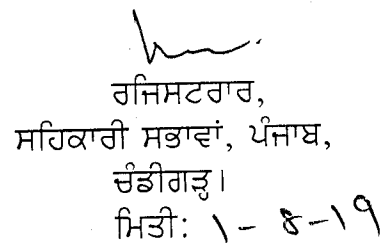 ਰਜਿਸਟਰਾਰ,
ਸਹਿਕਾਰੀ ਸਭਾਵਾਂ, ਪੰਜਾਬ,
ਚੰਡੀਗੜ੍ਹ।
ਮਿਤੀ: 1-8-19